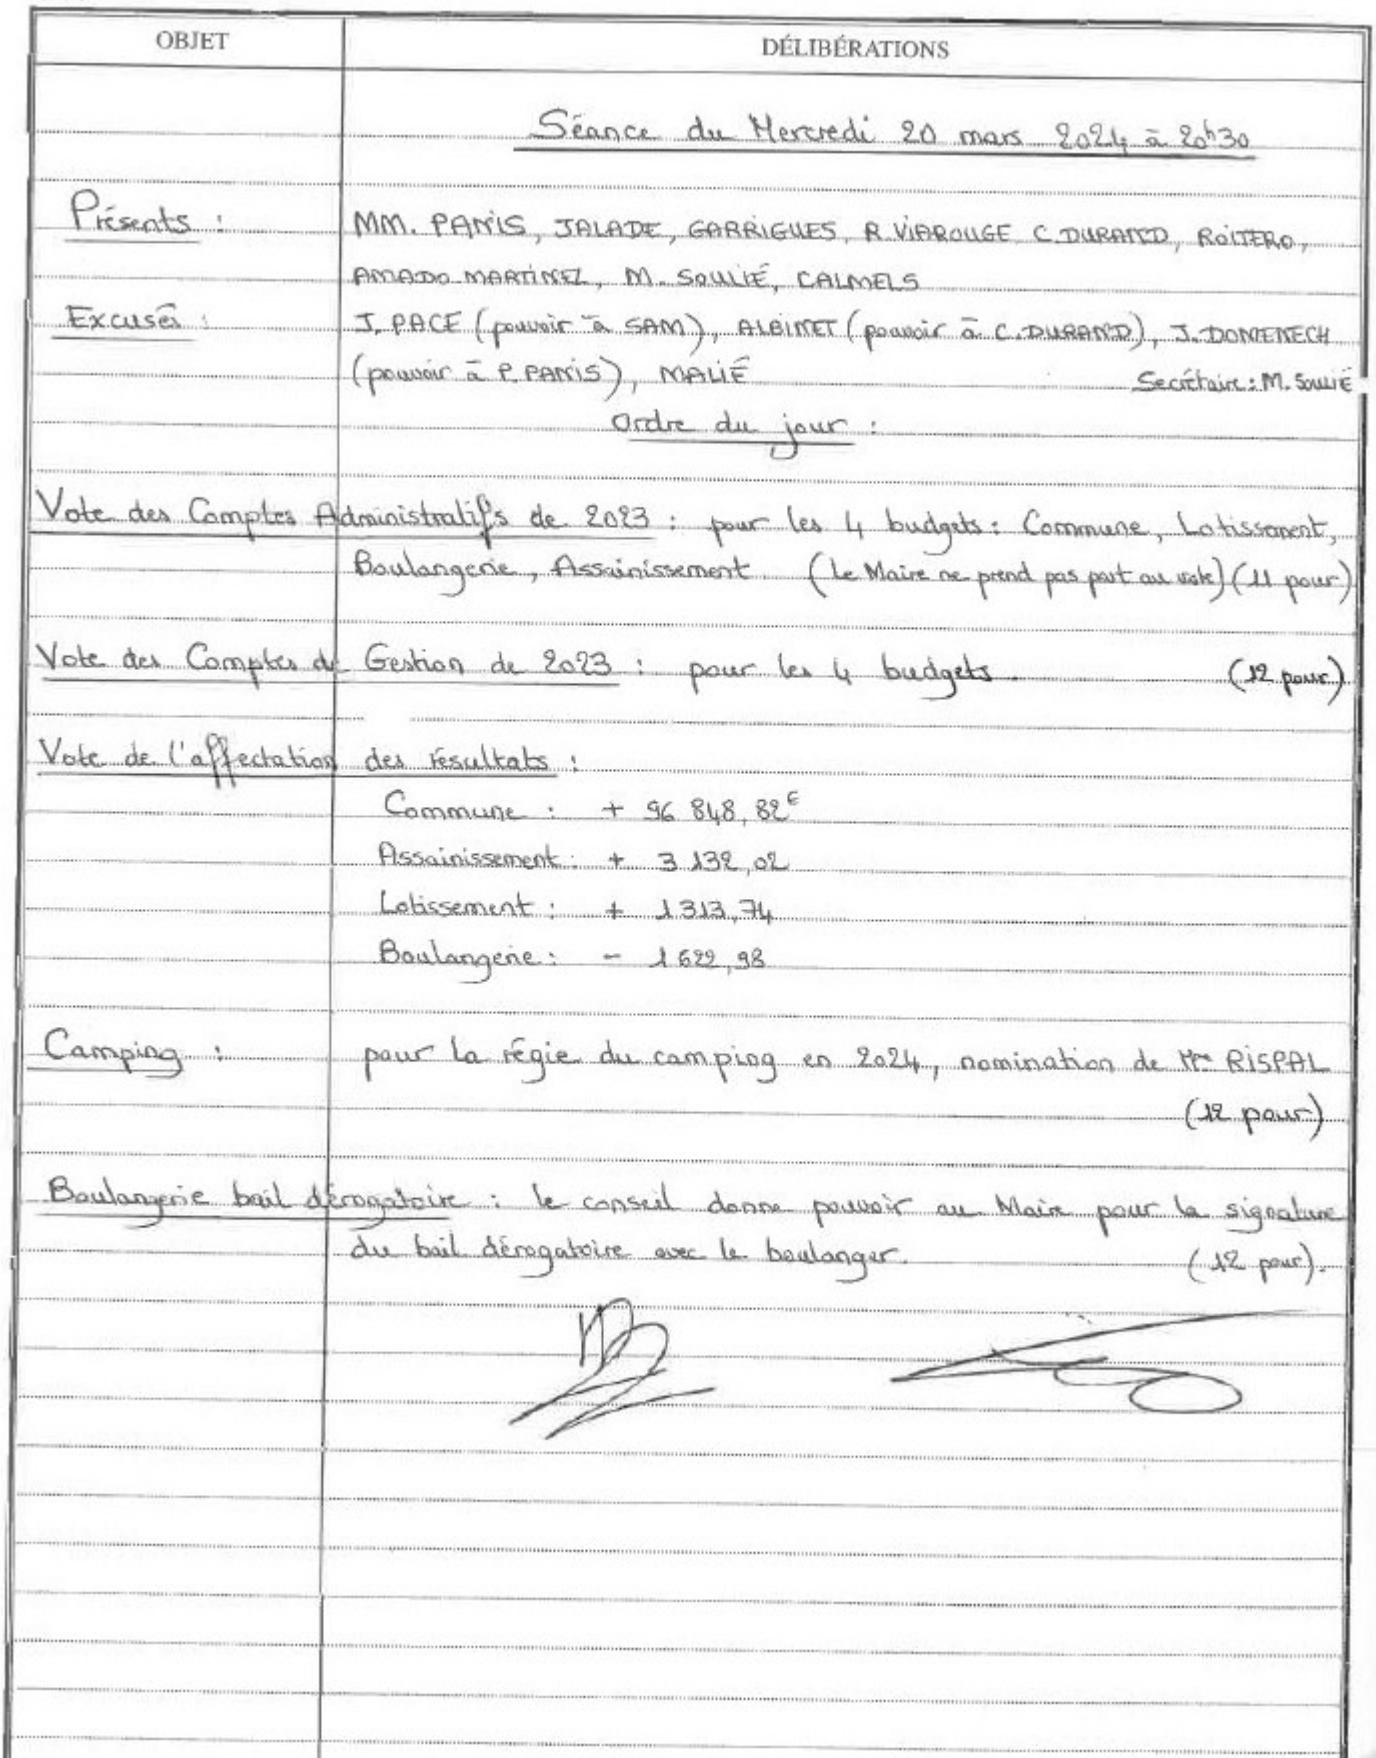 OBJET
DÉLIBÉRATIONS
Séance du Mercredi 20 mars 2024 à 20h30
Présents : MM. PANIS, JALADE, GARRIGUES, R. VIAROUGE C. DURAND, ROITERO,
AMADO MARTINEZ, M. SOULIÉ, CALMELS
Excusés : J. PACE (pouvoir à SAM), ALBINET (pouvoir à C. DURAND), J. DOMENECH
(pouvoir à P. PANIS), MALIÉ Secrétaire : M. SOULIÉ
Ordre du jour :
Vote des Comptes Administratifs de 2023 : pour les 4 budgets : Commune, Lotissement,
Boulangerie, Assainissement (Le Maire ne prend pas part au vote) (11 pour)
Vote des Comptes de Gestion de 2023 : pour les 4 budgets. (12 pour)
Vote de l'affectation des résultats :
Commune : + 96 848,82€
Assainissement : + 3 132,02
Lotissement : + 1 313,74
Boulangerie : - 1 622,98
Camping : pour la régie du camping en 2024, nomination de Mme RISPAL
(12 pour)
Boulangerie bail dérogatoire : le conseil donne pouvoir au Maire pour la signature
du bail dérogatoire avec le boulanger. (12 pour).